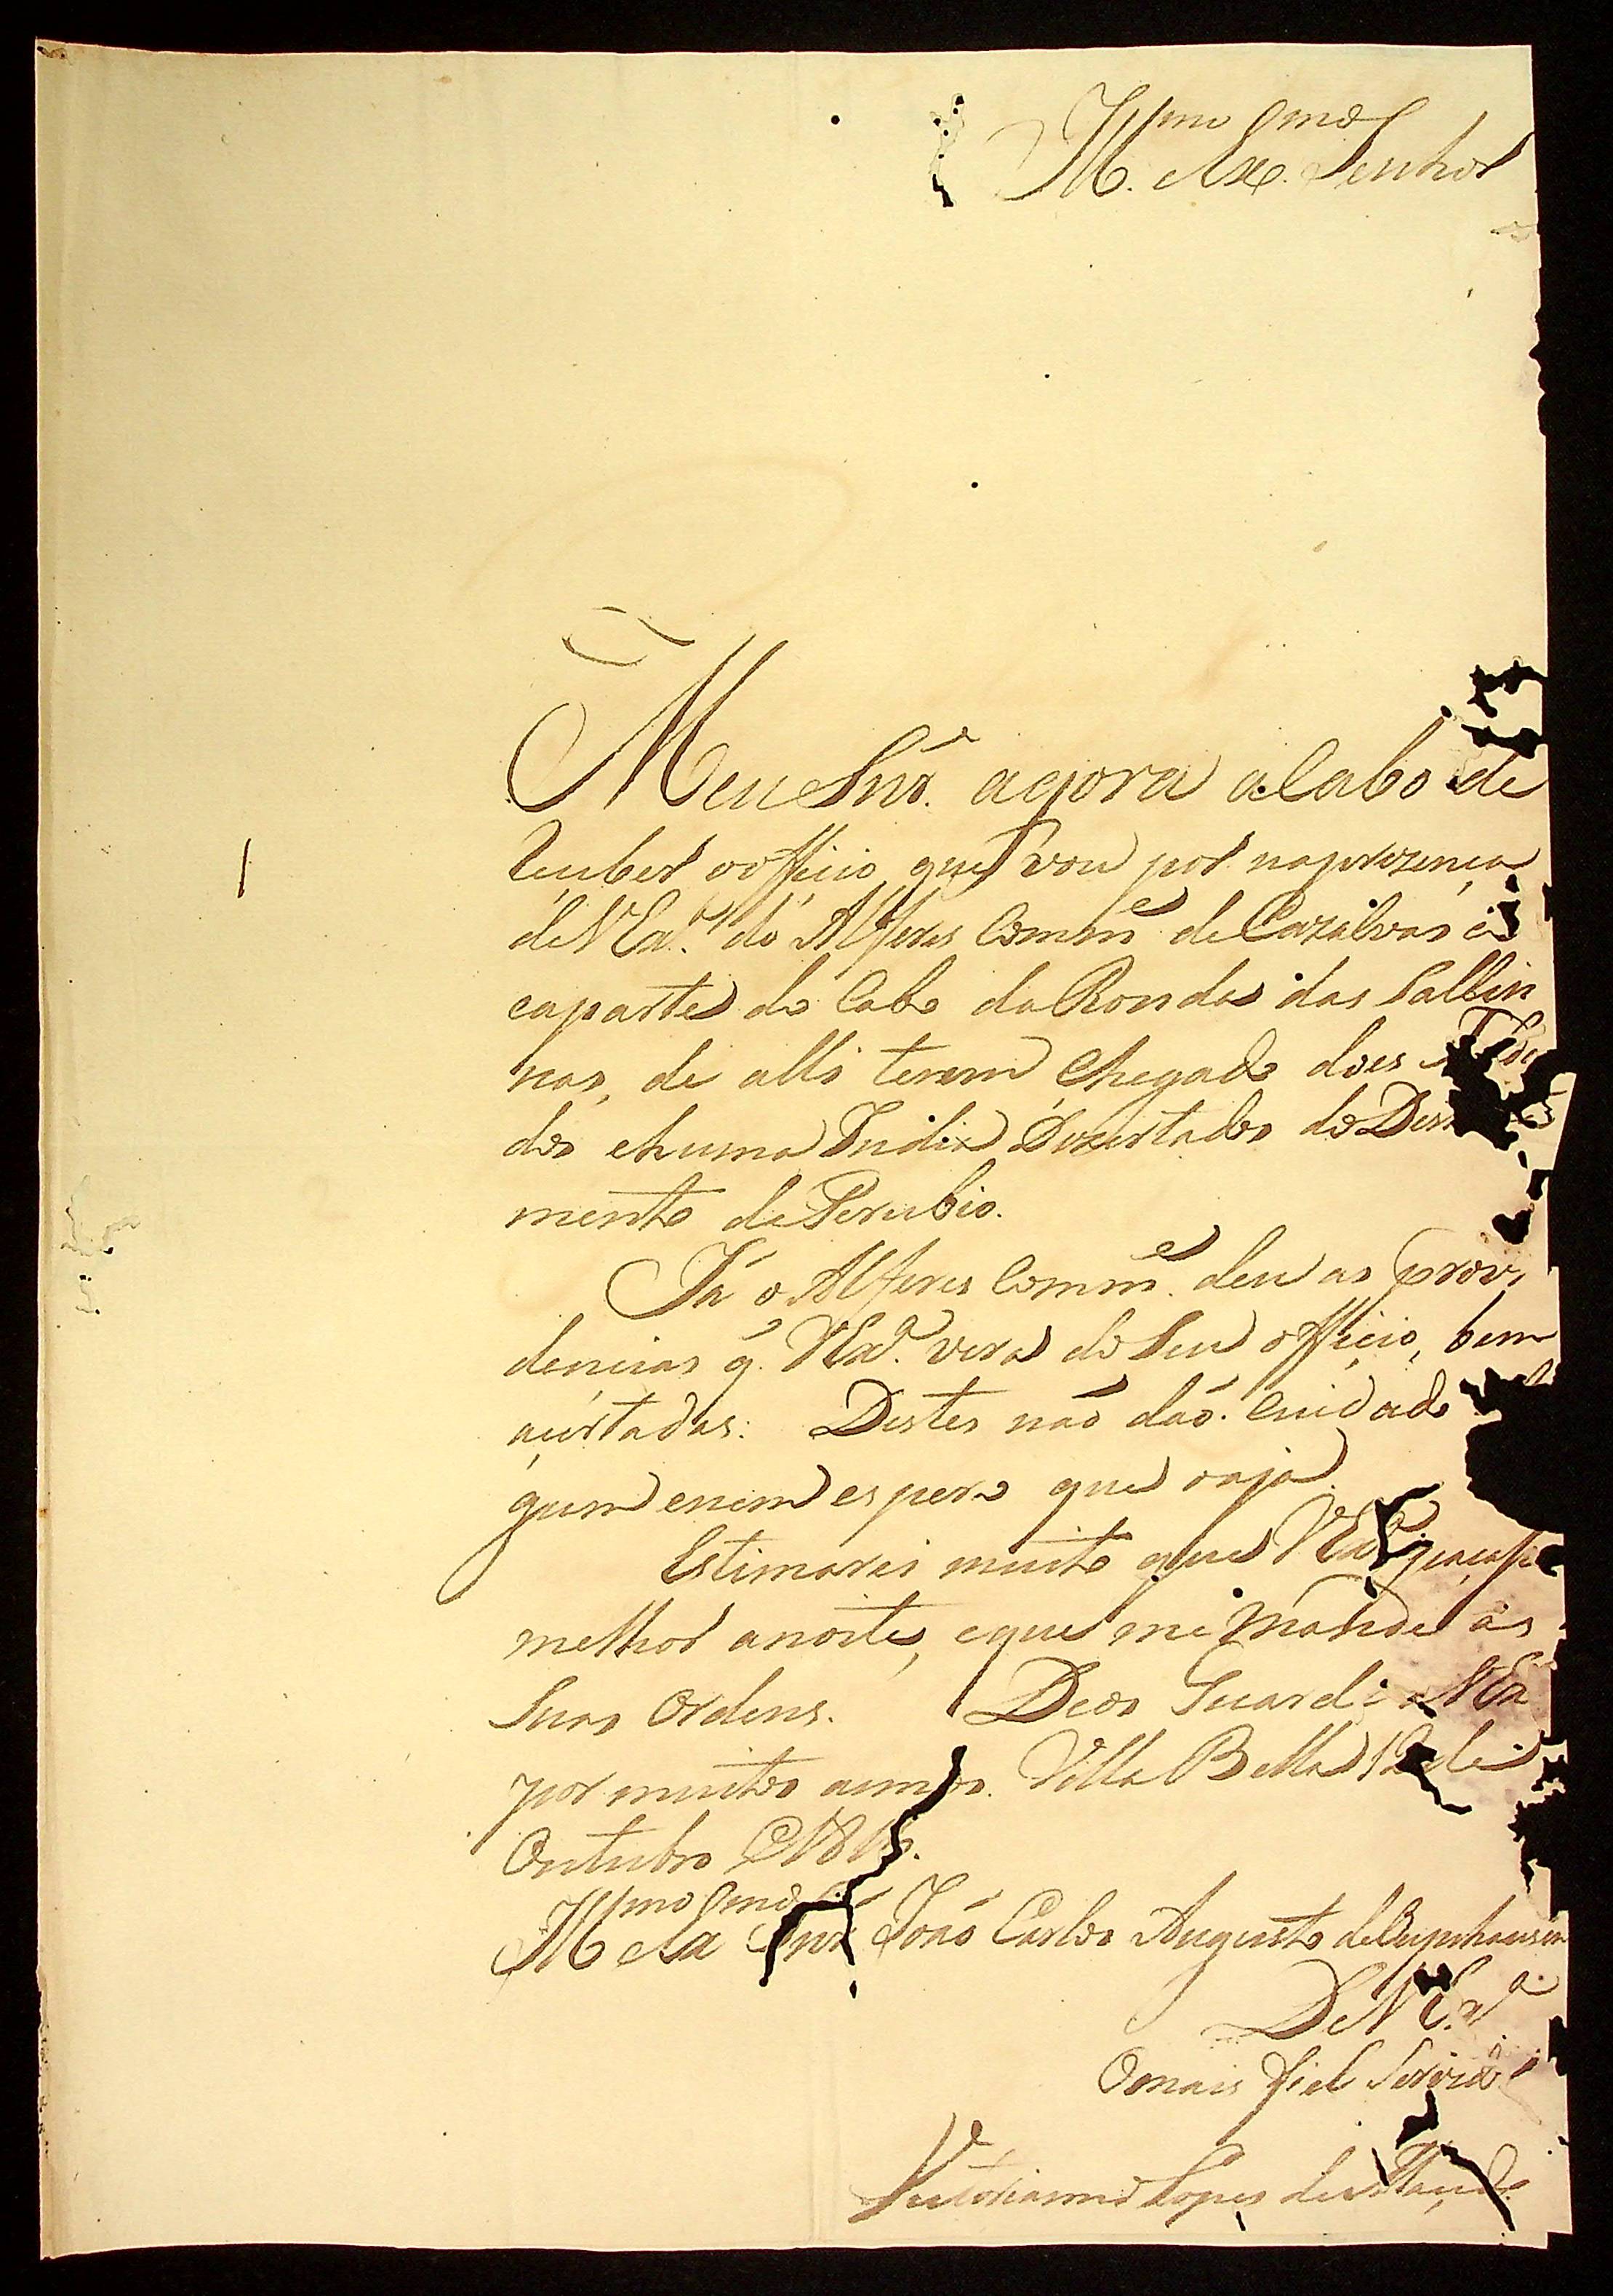 Ill.mo Ex.mo Senhor
Meu Snr. agora acabo de
receber o officio, que vou por na prezença
de V Ex.a do Alferes Comm.e de Cazalvas
e a parte do Cabo da Ronda das Sallin
nas, de alli terem chegado dois
dos e huma India Dezertados do Des
mento de Perubio.
Já o Alferes Comm.e deu as provi
dencias q. V Ex.a verá do Seu officio, bem
açertadas: Destes naõ daõ Cuidado
gum enem espero que aja.
Estimarei muito que V Ex.a
melhor anoite, eque me mande as
Suas Ordens. Deos Guarde a V Ex.a
por muitos annos. Villa Bella 12 de
Outubro
Ill.mo Ex.mo Snr. Joaõ Carlos Augusto de Oeynhausen
De V Ex.a
Omais fiel Servidor
Victoriano Lopes de